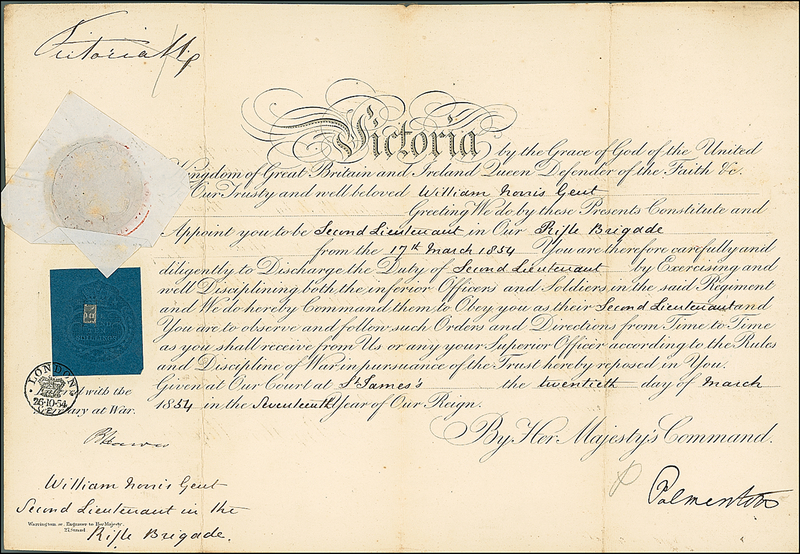 Victoria R
Victoria by the Grace of God of the United
Kingdom of Great Britain and Ireland Queen Defender of the Faith &c.
Our Trusty and well beloved William Norris Gent
Greeting We do by these Presents Constitute and
Appoint you to be Second Lieutenant in Our Rifle Brigade
from the 17th March 1854 You are therefore carefully and
diligently to Discharge the Duty of Second Lieutenant by Exercising and
well Disciplining both the inferior Officers and Soldiers in the said Regiment
and We do hereby Command them to Obey you as their Second Lieutenant and
You are to observe and follow such Orders and Directions from Time to Time
as you shall receive from Us or any your Superior Officer according to the Rules
and Discipline of War in pursuance of the Trust hereby reposed in You.
Given at Our Court at St. James's the twentieth day of March
1854 in the Seventeenth Year of Our Reign.
By Her Majesty's Command.
Palmerston
SHILLINGS
LONDON
26·10·54
with the
at War.
William Norris Gent
Second Lieutenant in the
Rifle Brigade.
Warrington sc. Engraver to Her Majesty,
27, Strand